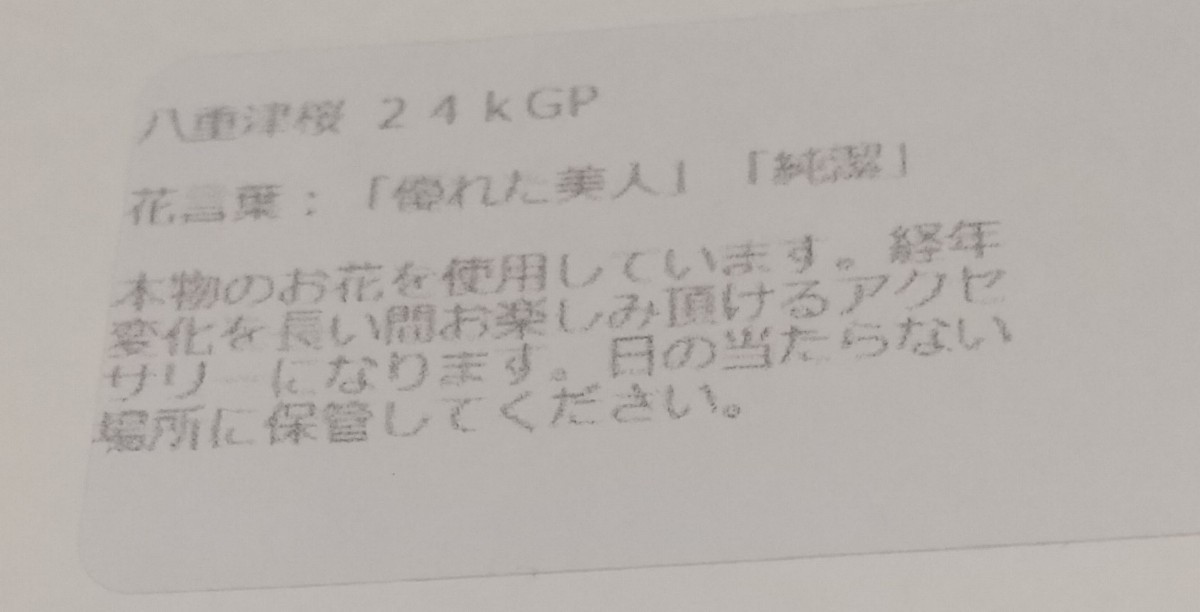 八重津桜 24kGP
花言葉：「優れた美人」「純潔」
本物のお花を使用しています。経年
変化を長い間お楽しみ頂けるアクセ
サリーになります。日の当たらない
場所に保管してください。